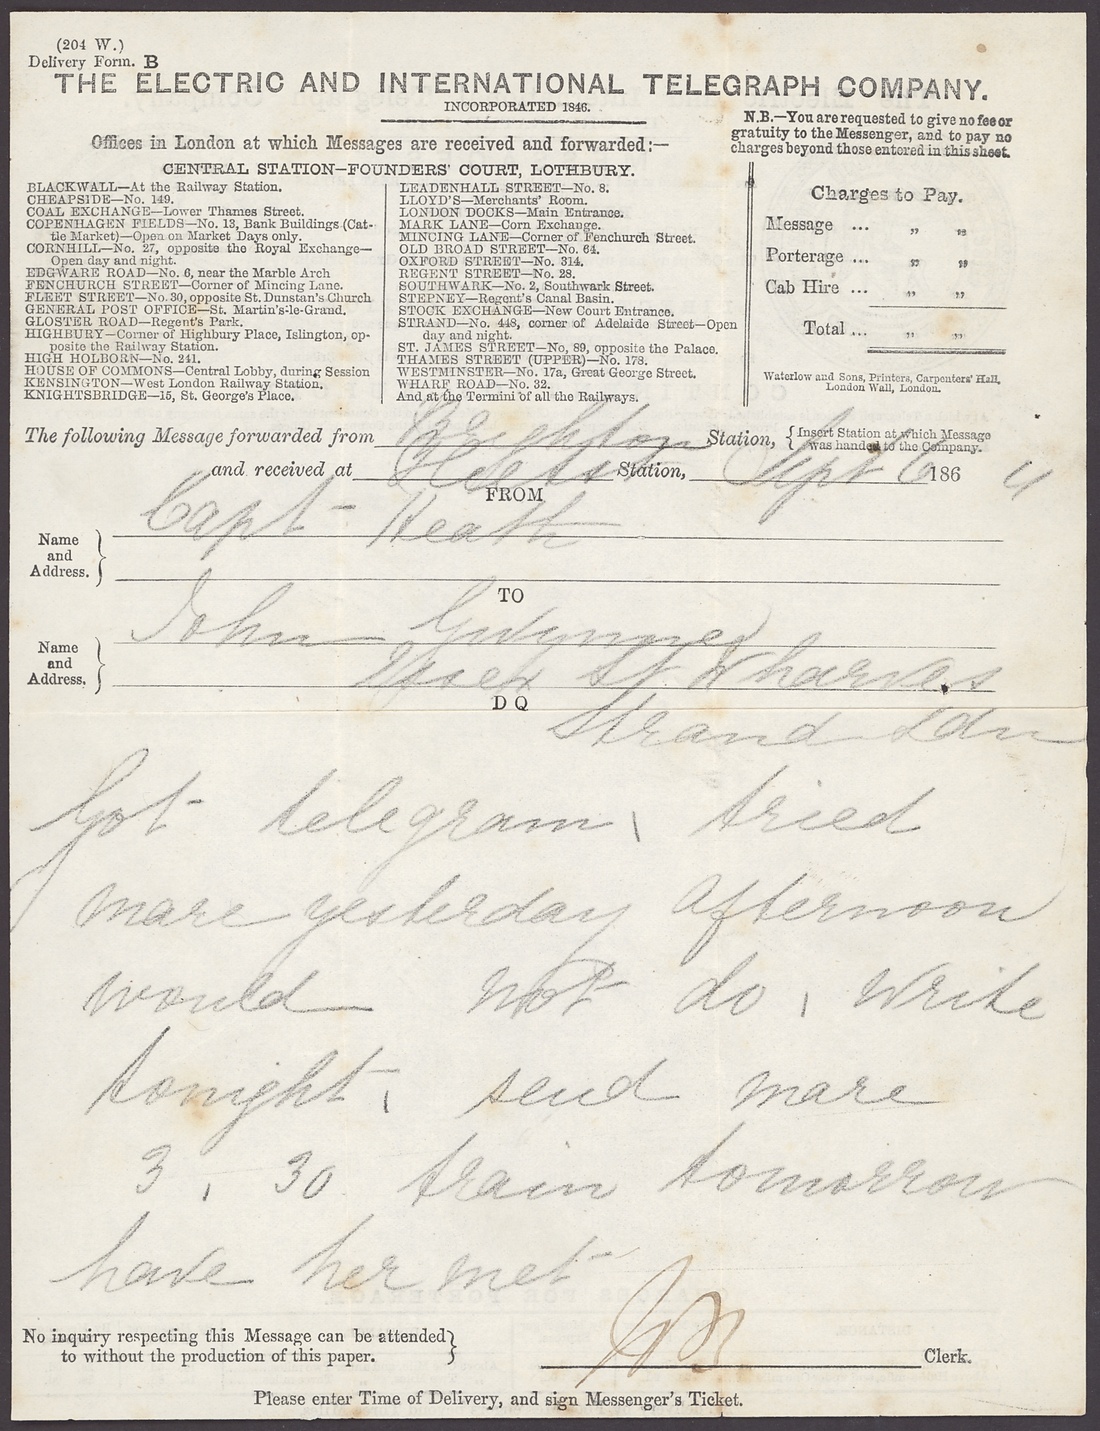 (204 W.)
Delivery Form. B
THE ELECTRIC AND INTERNATIONAL TELEGRAPH COMPANY.
INCORPORATED 1846.
N.B.—You are requested to give no fee or
gratuity to the Messenger, and to pay no
charges beyond those entered in this sheet.
Offices in London at which Messages are received and forwarded:—
CENTRAL STATION—FOUNDERS' COURT, LOTHBURY.
BLACKWALL—At the Railway Station.
CHEAPSIDE—No. 149.
COAL EXCHANGE—Lower Thames Street.
COPENHAGEN FIELDS—No. 13, Bank Buildings (Cat-
tle Market)—Open on Market Days only.
CORNHILL—No. 27, opposite the Royal Exchange—
Open day and night.
EDGWARE ROAD—No. 6, near the Marble Arch
FENCHURCH STREET—Corner of Mincing Lane.
FLEET STREET—No. 30, opposite St. Dunstan's Church
GENERAL POST OFFICE—St. Martin's-le-Grand.
GLOSTER ROAD—Regent's Park.
HIGHBURY—Corner of Highbury Place, Islington, op-
posite the Railway Station.
HIGH HOLBORN—No. 241.
HOUSE OF COMMONS—Central Lobby, during Session
KENSINGTON—West London Railway Station.
KNIGHTSBRIDGE—15, St. George's Place.
LEADENHALL STREET—No. 8.
LLOYD'S—Merchants' Room.
LONDON DOCKS—Main Entrance.
MARK LANE—Corn Exchange.
MINCING LANE—Corner of Fenchurch Street.
OLD BROAD STREET—No. 64.
OXFORD STREET—No. 314.
REGENT STREET—No. 28.
SOUTHWARK—No. 2, Southwark Street.
STEPNEY—Regent's Canal Basin.
STOCK EXCHANGE—New Court Entrance.
STRAND—No. 448, corner of Adelaide Street—Open
day and night.
ST. JAMES STREET—No, 89, opposite the Palace.
THAMES STREET (UPPER)—No. 178.
WESTMINSTER—No. 17a, Great George Street.
WHARF ROAD—No. 32.
And at the Termini of all the Railways.
Charges to Pay.
Message ... „ „
Porterage ... „ „
Cab Hire ... „ „
Total ... „ „
Waterlow and Sons, Printers, Carpenters' Hall,
London Wall, London.
The following Message forwarded from Brighton Station, {Insert Station at which Message
was handed to the Company.
and received at Station, Sept 6 186 4
FROM
Name and Address. } Capt Heath
TO
Name and Address. } John Gwynne
Essex St Wharves
DQ
Strand Ldn
Got telegram, tried
mare yesterday afternoon
would not do, write
tonight, send mare
3, 30 train tomorrow
have her met
No inquiry respecting this Message can be attended
to without the production of this paper.
Clerk.
Please enter Time of Delivery, and sign Messenger's Ticket.